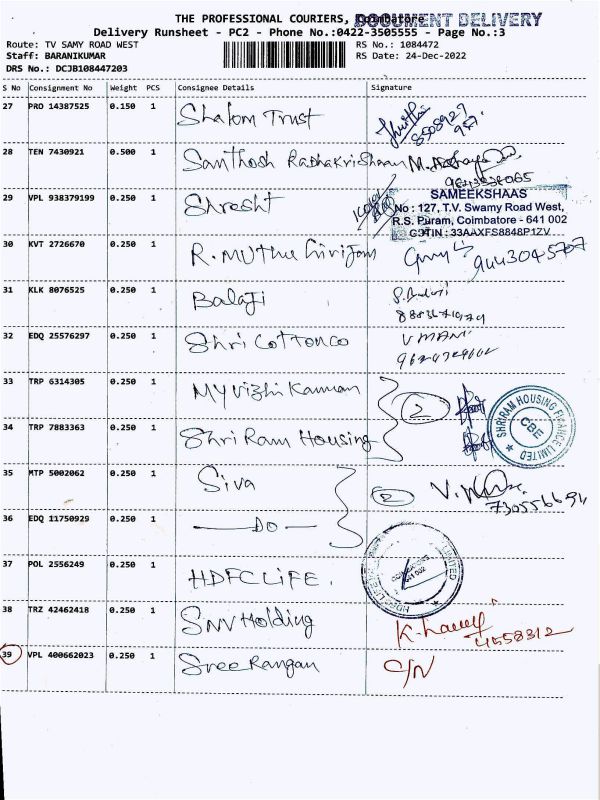 THE PROFESSIONAL COURIERS, Coimbatore
DOCUMENT DELIVERY
Delivery Runsheet - PC2 - Phone No.:0422-3505555 - Page No.:3
Route: TV SAMY ROAD WEST RS No.: 1084472
Staff: BARANIKUMAR RS Date: 24-Dec-2022
DRS No.: DCJB108447203
S No Consignment No Weight PCS Consignee Details Signature
27 PRD 14387525 0.150 1 Shalom Trust
28 TEN 7430921 0.500 1 Santhosh Radhakrishnan
29 VPL 938379199 0.250 1 Shresht
SAMEEKSHAAS
No : 127, T.V. Swamy Road West,
R.S. Puram, Coimbatore - 641 002
GSTIN : 33AAXFS8848P1ZV
30 KVT 2726670 0.250 1 R. Muthu Girijan 9443045707
31 KLK 8076525 0.250 1 Balaji
32 EDQ 25576297 0.250 1 Shri Cottonco V MANI
33 TRP 6314305 0.250 1 Myvizhi Kannan 2
34 TRP 7883363 0.250 1 Shri Ram Housing
SHRIRAM HOUSING FINANCE LIMITED
CBE
35 MTP 5002062 0.250 1 Siva 2
7305566694
36 EDQ 11750929 0.250 1 DO
37 POL 2556249 0.250 1 HDFC LIFE.
38 TRZ 42462418 0.250 1 SNV Holding
4558312
39 VPL 400662023 0.250 1 Sree Rangan C/N